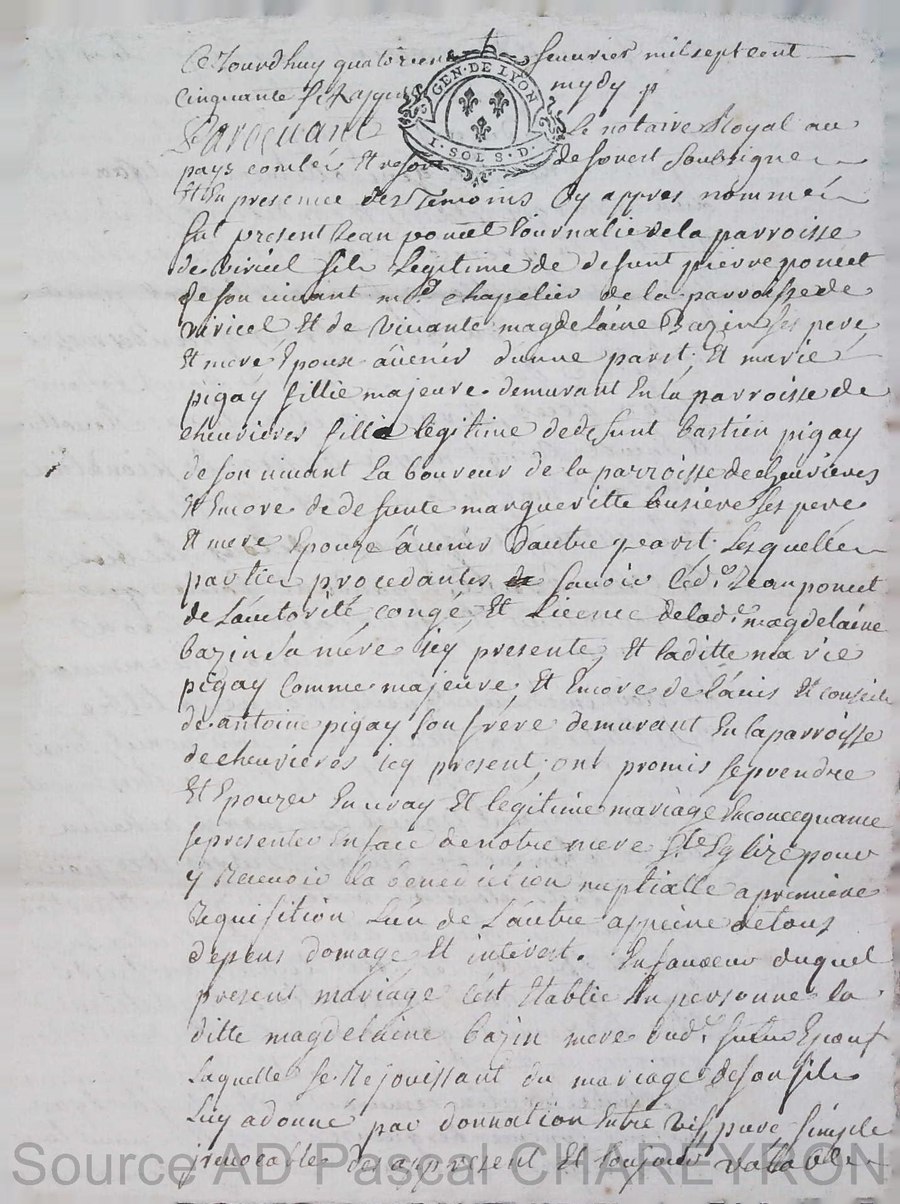 Ce Jourdhuy quatorzie fevvrier mil sept cent
Cinquante six apres mydy p
Pardevant Le notaire Royal au
pays comtes Et resor de forest soubsigne
Et En presence des Temoins Cy appres nommé
fut present Jean poncet Journalie de la parroisse
de viricel fils Legitime de defunt pierre poncet
de son vivant md chapelier de la parroisse de
viricel Et de vivante magdelaine Bazin ses pere
Et mere Epoux âvenir dunne part. Et marie
pigay fillie majeure demurant En la parroisse de
chevrieres fille legitime de defunt bastien pigay
de son vivant La boureur de la parroisse de chevrieres
Et Encore de defunte margueritte busiere ses pere
Et mere Epouze âvenir Dautre part. Lesquelle
partie procedantes savoir Led. Jean poncet
de Lautorité, congé, Et Licence de lad. magdelaine
bazin sa mere icy presente, Et laditte marie
pigay comme majeure Et Encore de lavis Et conseil
de antoine pigay son frère demurant En la parroisse
de chevrieres icy present, ont promis se prendre
Et Epouzer En vray Et légitime mariage En concequance
se presenter En face de notre mere Ste Eglize pour
y Recevoir la benediction nuptialle a premiere
Requisition Lun de Lautre appeine de tous
depens domage Et interest. En faveur duquel
present mariage sest Etablie En personne la
ditte magdelaine bazin mere dud. futur Epoux
Laquelle se Rejouissant du mariage de son fils
Luy a donné par donnation Entre vifs pure simple
jrrevocable des appresent Et toujour valable
GEN·DE LYON
1·SOL S·D·
Source AD Pascal CHAREYRON